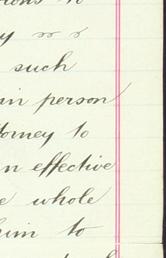 to
y
such
in person
torney to
n effective
e whole
him to